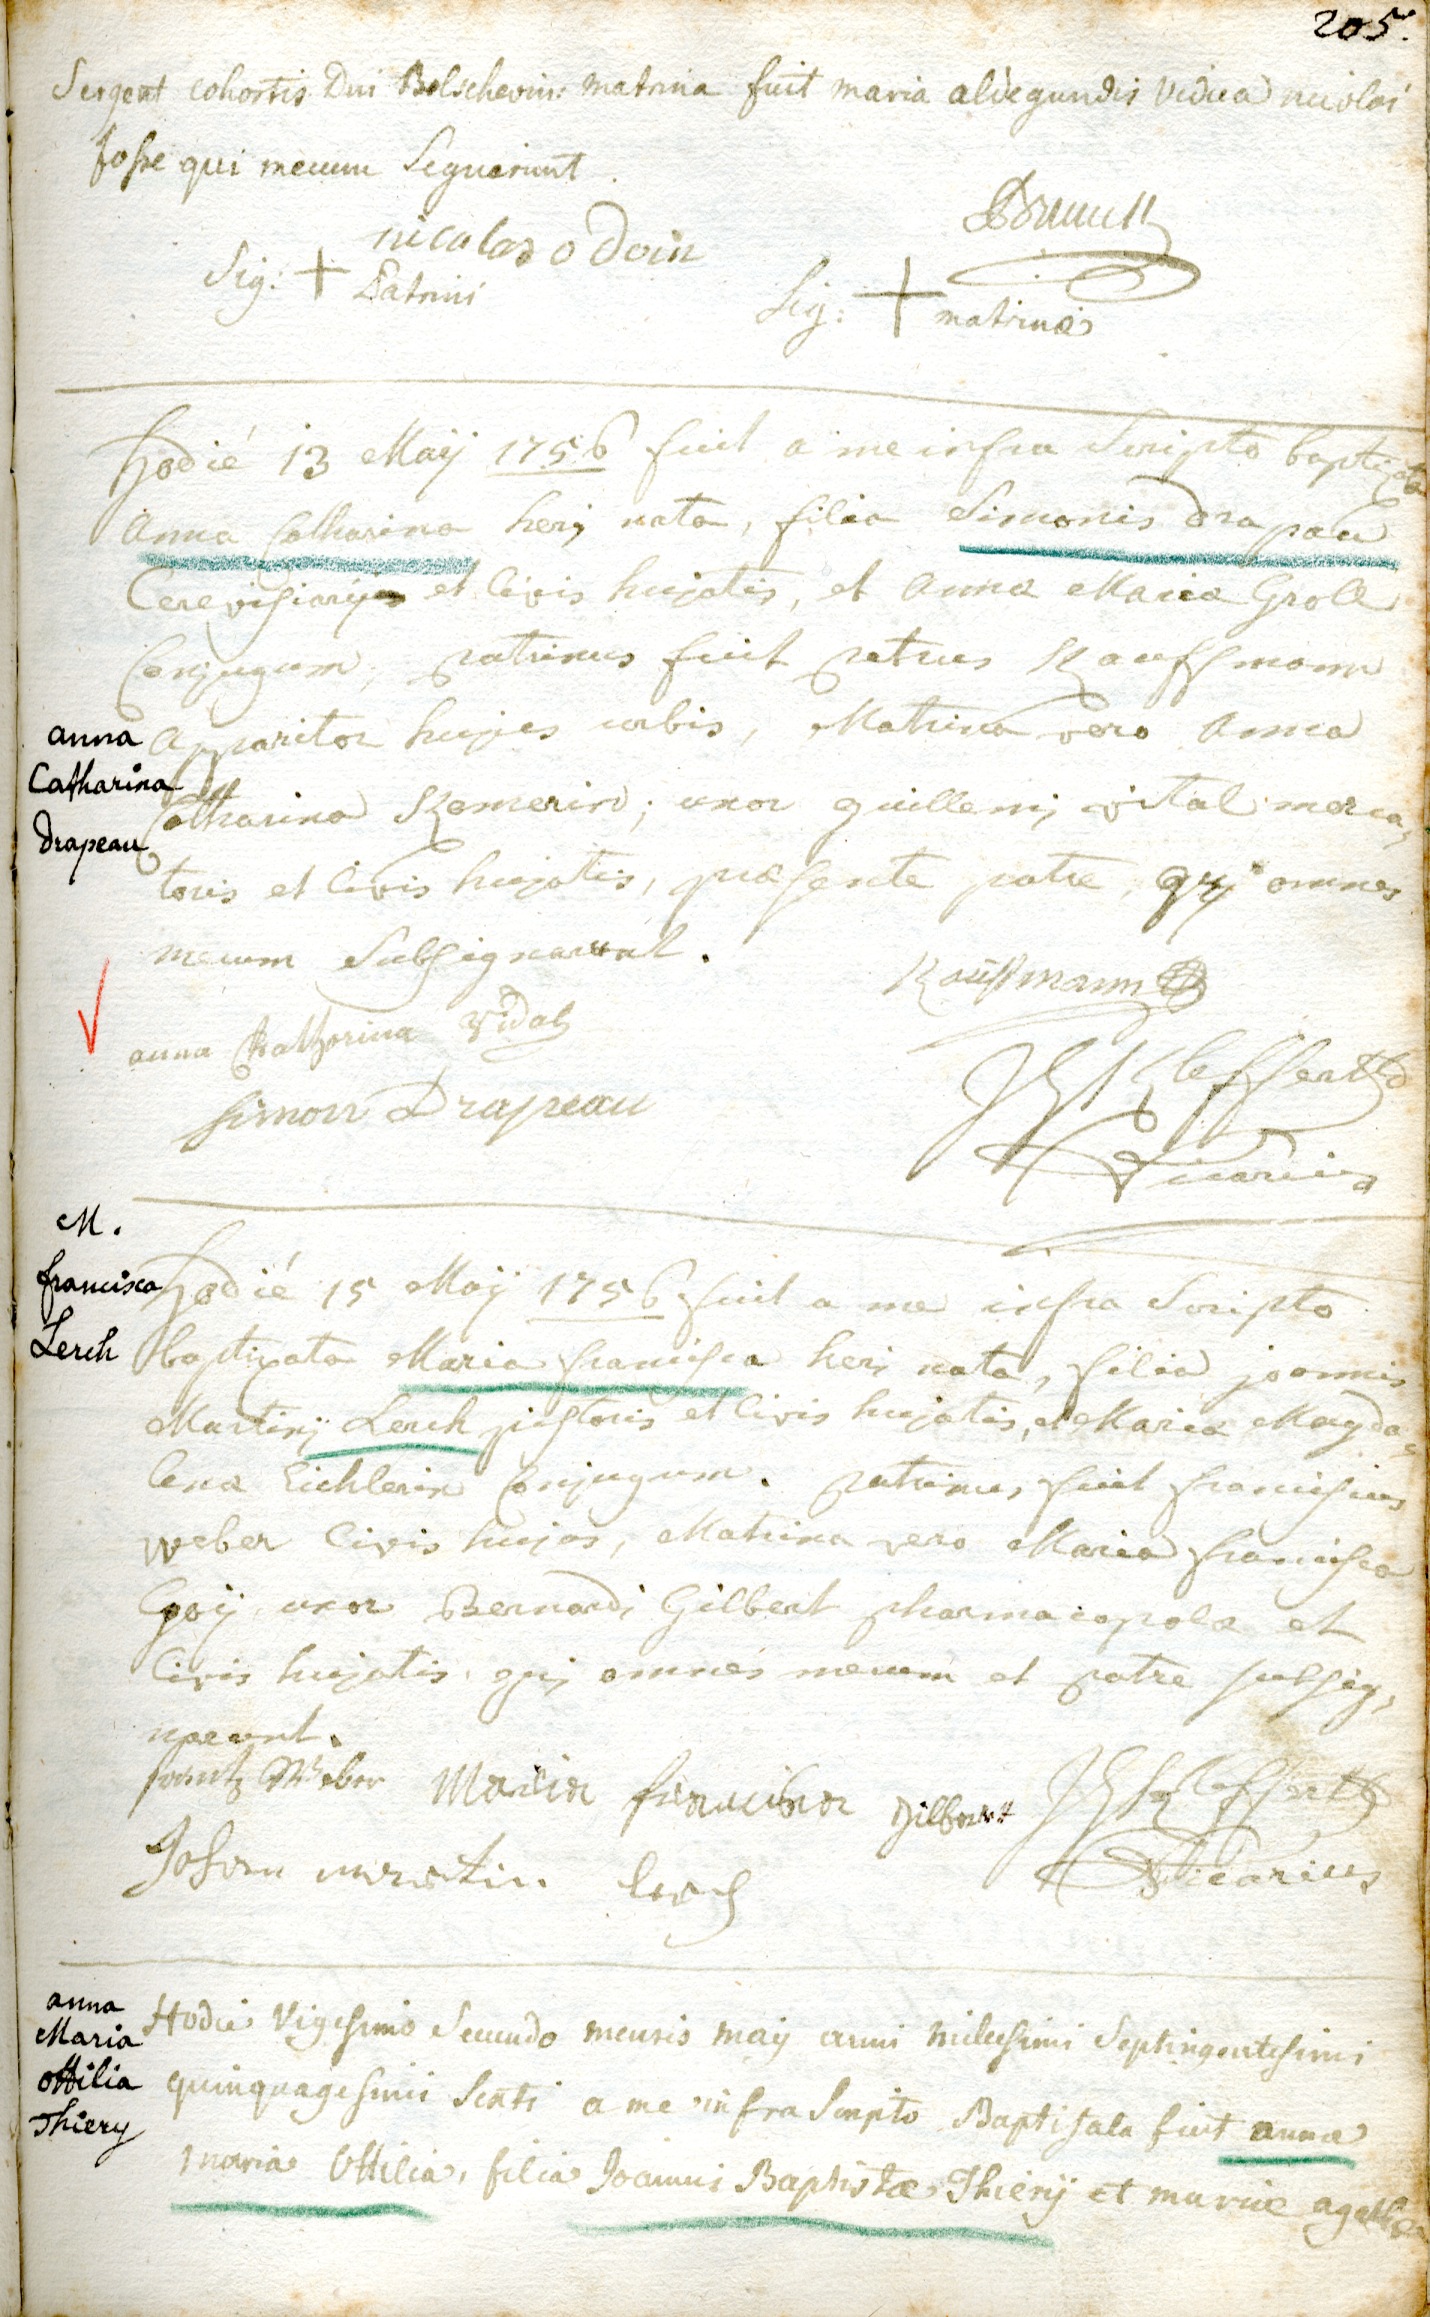 205.
Sergent cohortis Dni Bolschevin: matrina fuit maria aldegundis vidua nicolai
fosse qui mecum Signerunt.
nicolas odoin
Sig: + Patrini
Sig: + matrinæ
Hodié 13 Maÿ 1756 fuit a me infra Scripto baptizata
Anna Catharina herj nata, filia Simonis drapau
Cerevisiarij et Civis hujatis, et Anna Maria Groll
Conjugum, patrinus fuit petrus Kauffmann
anna
Catharina
Drapeau
Apparitor hujus urbis, Matrina vero Anna
Catharina Kemerin; uxor guillemj vital merca,
toris et Civis hujatis, præsente patre, qui omnes
mecum Subsignarunt.
Kauffmann
anna Catharina Vidal
simon Drapeau
Kleffert
Vicarius
M.
francisca
Lerch
Hodié 15 Maÿ 1756 fuit a me infra Scripto
baptizata Maria francisca herj nata, filia joannis
Martinj Lerch pistoris et Civis hujatis, et Maria Magda=
lena Eichlerin Conjugum. patrinus fuit franciscus
Weber Civis hujas, Matrina vero Maria francisca
Goÿ uxor Bernardj Gilbert pharmacopolæ et
Civis hujatis, qui omnes mecum et patre subsig,
narunt.
frantz Weber Maria francisca gilbert Kleffert
Johan martin lerch Vicarius
anna
Maria
ottilia
Thiery
Hodie Vigesimo Secundo mensis maÿ anni millesimi Septingentesimi
quinquagesimi Sexti a me infra Scripto Baptisata fuit anna
maria Ottilia, filia Joannis Baptistæ Thierÿ et mariæ agatha